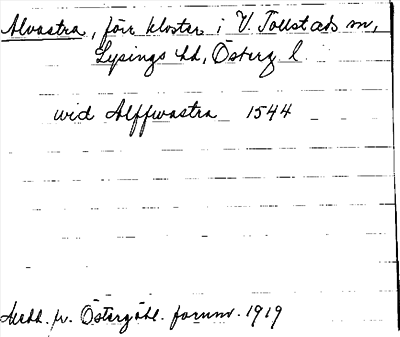 Alvastra, förr kloster i V. Tollstads sn,
Lysings hd, Österg l.
wid Alffwastra 1544
Medd. fr. Östergötl. fornm. 1919